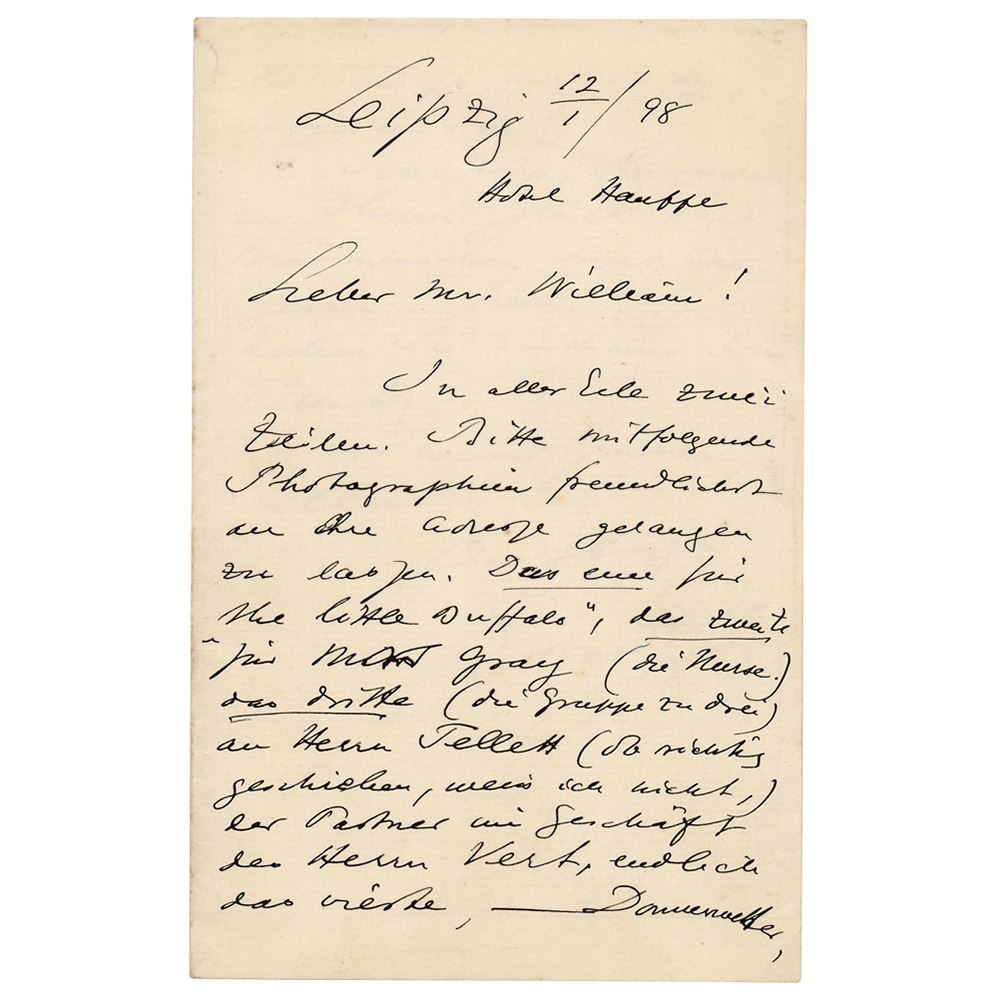 Leipzig 12/1/98
Hotel Hauffe
Lieber Mr. William!
In aller Eile zwei
Zeilen. Bitte mitfolgende
Photographien freundlichst
an Ihre Adresse gelangen
zu lassen. Das eine für
the little Buffalo", das zweite
"für Gray (die Nurse.)
das dritte (die Gruppe zu drei)
an Herrn Tellett (ob richtig
geschrieben, weis ich nicht,)
der Partner im Geschäft
des Herrn Vert, endlich
das vierte, — Donnerwetter,